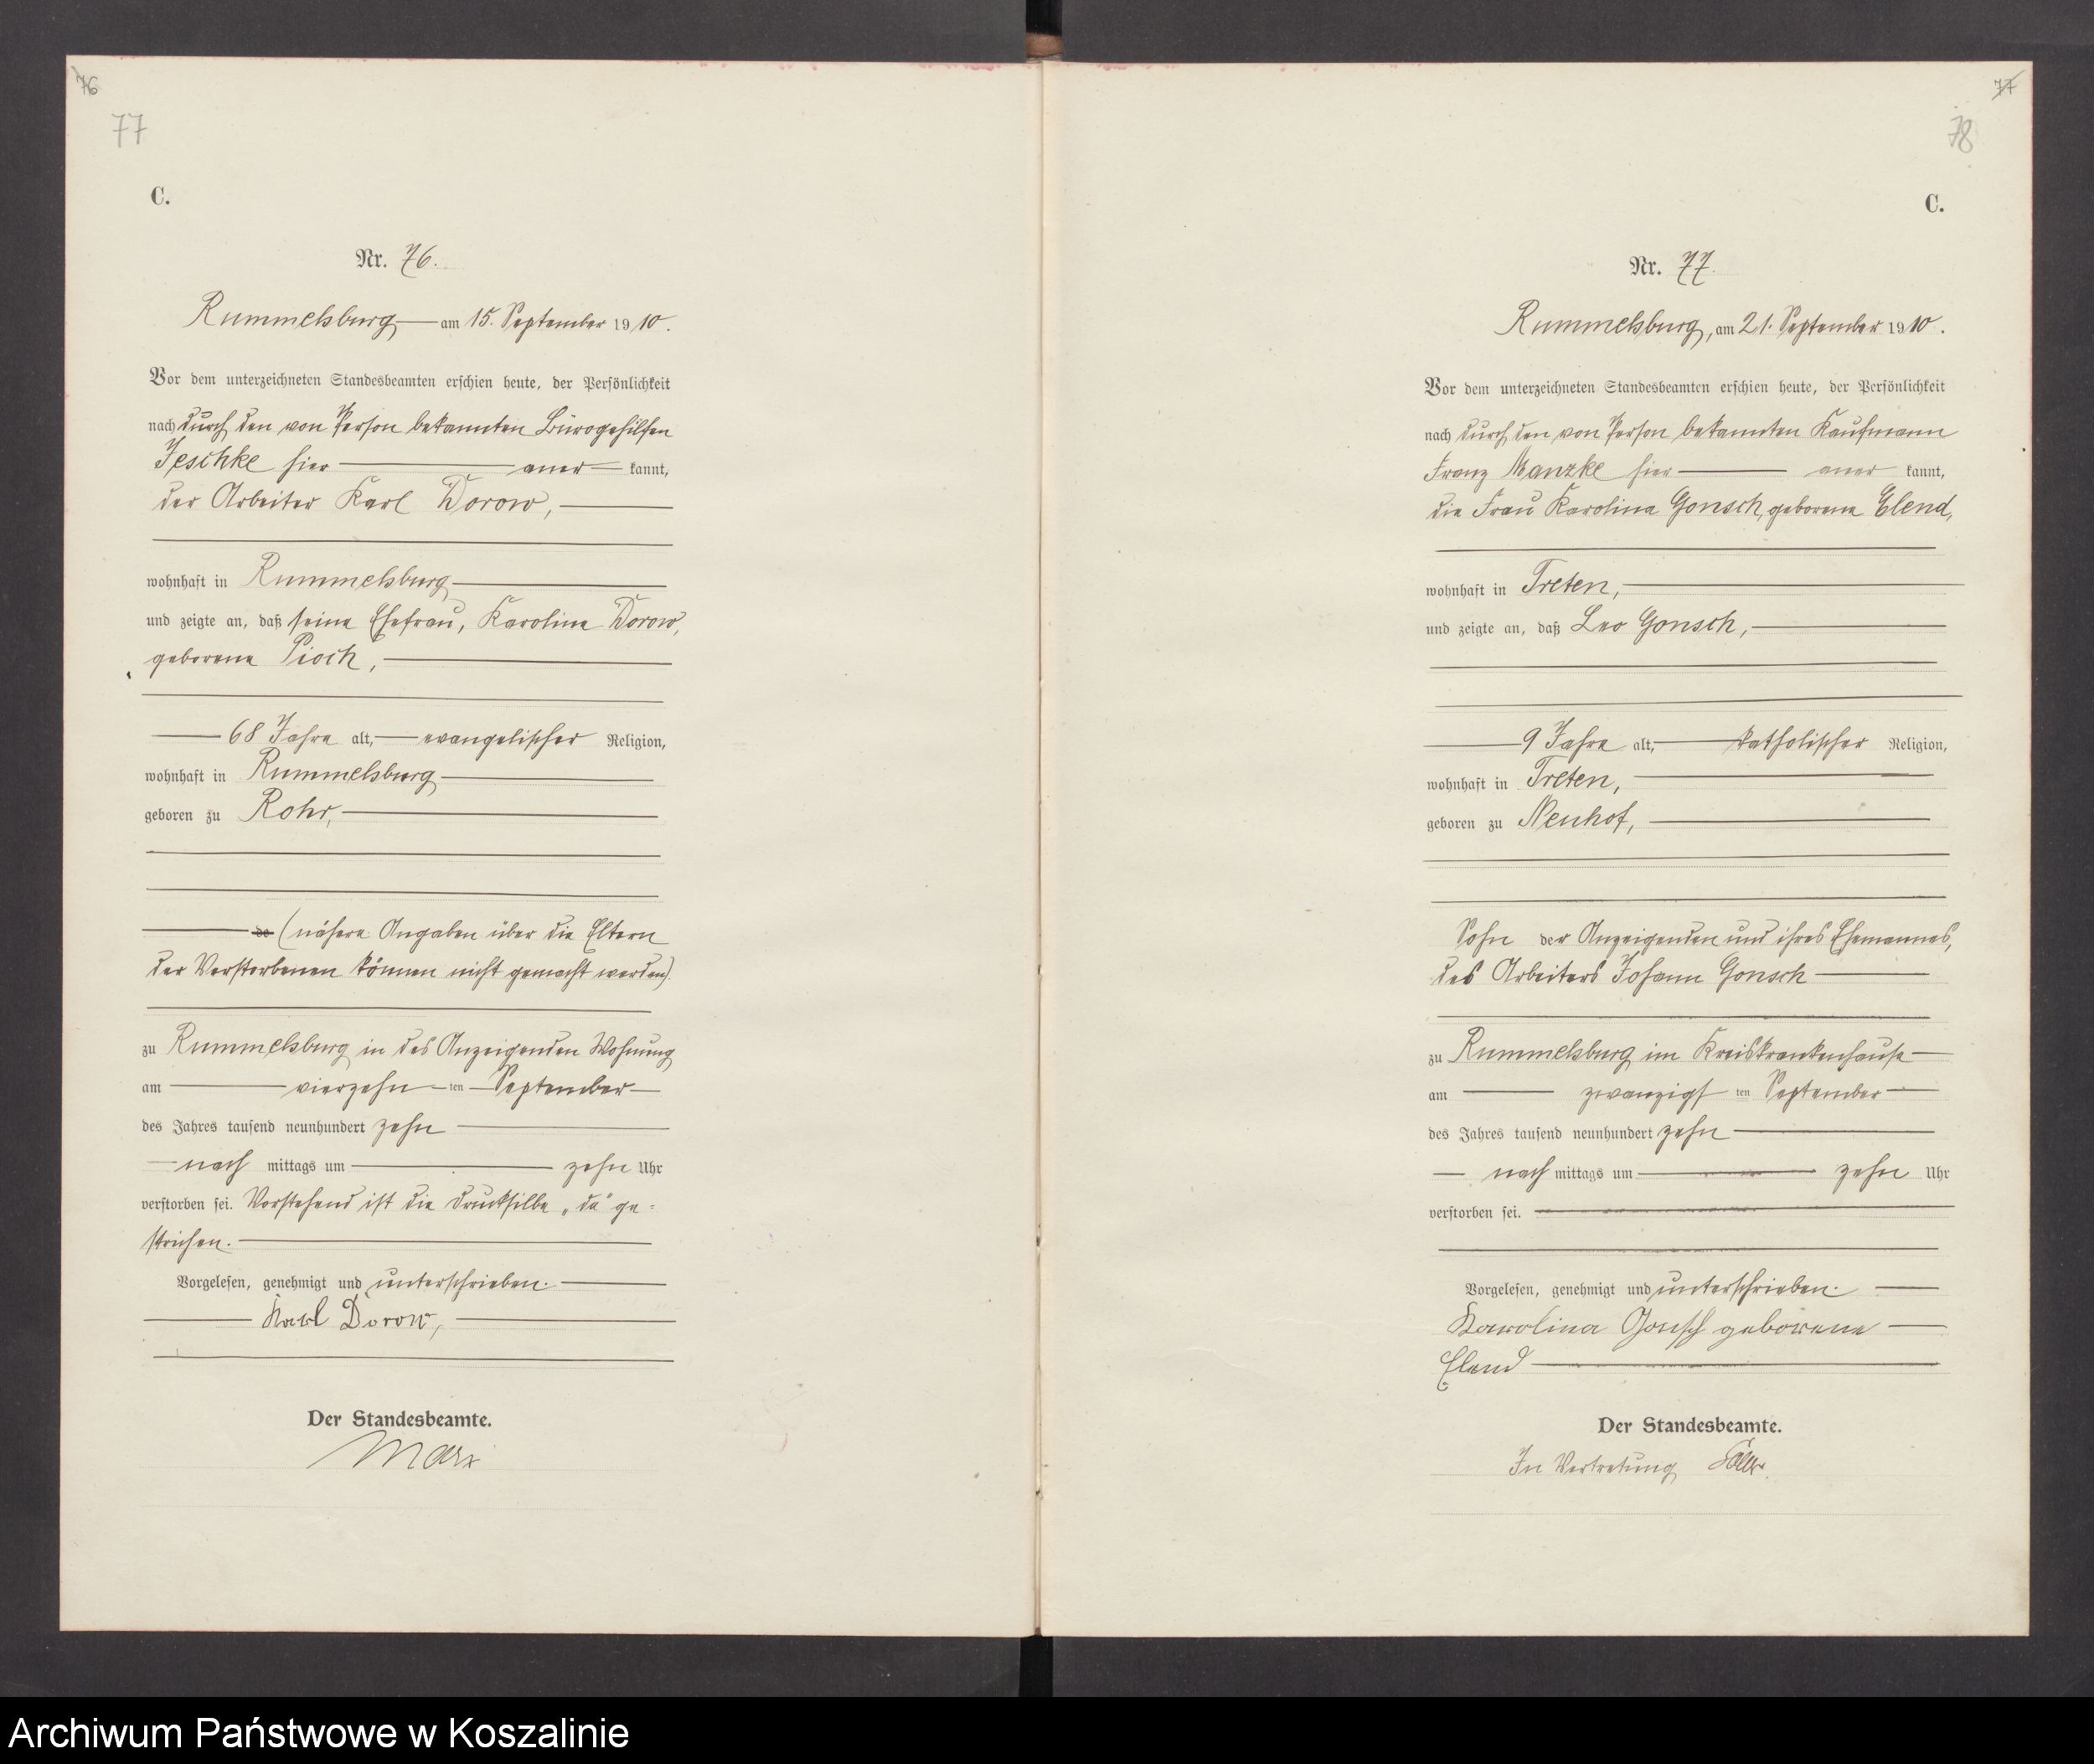 76
77
C.
Nr. 76.
Rummelsburg am 15. September 1910.
Vor dem unterzeichneten Standesbeamten erschien heute, der Persönlichkeit
nach durch den von Person bekannten Bürogehilfen
Jeschke hier aner kannt,
der Arbeiter Karl Dorow,
wohnhaft in Rummelsburg
und zeigte an, daß seine Ehefrau, Karoline Dorow,
geborene Pioch,
68 Jahre alt, evangelischer Religion,
wohnhaft in Rummelsburg
geboren zu Rohr,
de (nähere Angaben über die Eltern
der Verstorbenen können nicht gemacht werden)
zu Rummelsburg in des Anzeigenden Wohnung
am vierzehn ten September
des Jahres tausend neunhundert zehn
nach mittags um zehn Uhr
verstorben sei. Vorstehend ist die Drucksilbe „de" ge=
strichen.
Vorgelesen, genehmigt und unterschrieben.
Karl Dorow,
Der Standesbeamte.
Marx
77
78
C.
Nr. 77.
Rummelsburg, am 21. September 1910.
Vor dem unterzeichneten Standesbeamten erschien heute, der Persönlichkeit
nach durch den von Person bekannten Kaufmann
Franz Manzke hier aner kannt,
die Frau Karolina Gonsch, geborene Elend,
wohnhaft in Treten,
und zeigte an, daß Leo Gonsch,
9 Jahre alt, katholischer Religion,
wohnhaft in Treten,
geboren zu Neuhof,
Sohn der Anzeigenden und ihres Ehemannes,
des Arbeiters Johann Gonsch
zu Rummelsburg im Kreiskrankenhause
am zwanzigsten September
des Jahres tausend neunhundert zehn
nach mittags um zehn Uhr
verstorben sei.
Vorgelesen, genehmigt und unterschrieben.
Karolina Gonsch geborene
Elend
Der Standesbeamte.
In Vertretung
Archiwum Państwowe w Koszalinie